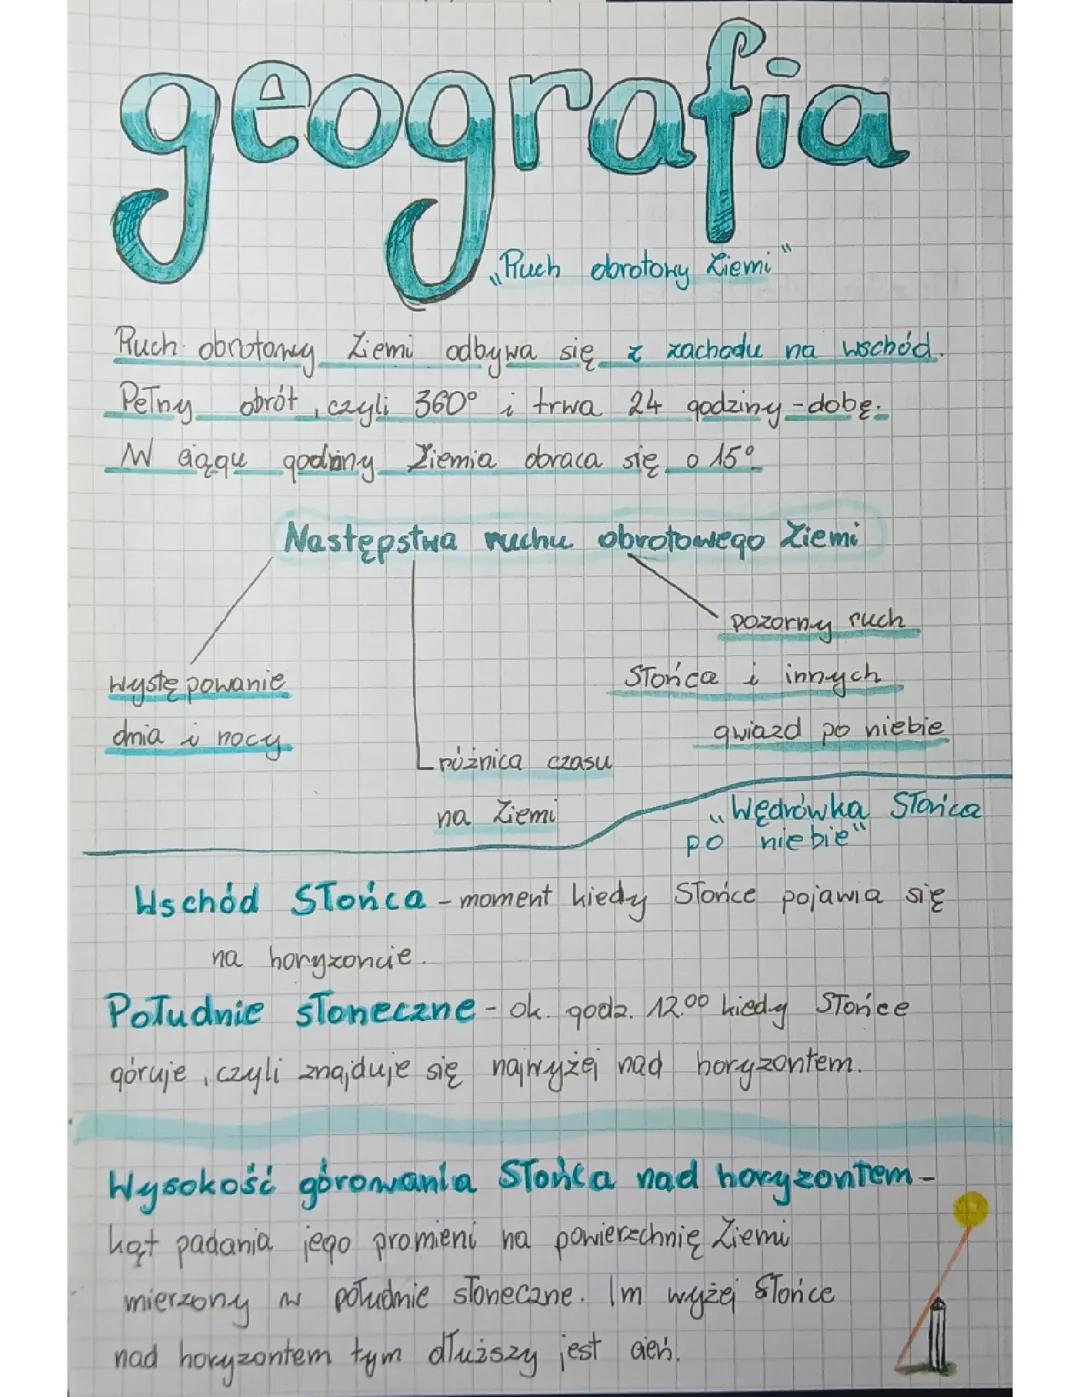 geografia
„Ruch obrotowy Ziemi"
Ruch obrotowy Ziemi odbywa się z zachodu na wschód.
Pełny obrót, czyli 360° i trwa 24 godziny - dobę.
W ciągu godziny Ziemia obraca się o 15°
Następstwa ruchu obrotowego Ziemi
pozorny ruch
Słońca i innych
gwiazd po niebie
występowanie
dnia i nocy
różnica czasu
na Ziemi
„Wędrówka Słońca
po niebie"
Wschód Słońca - moment kiedy Słońce pojawia się
na horyzoncie.
Południe słoneczne - ok. godz. 12.00 kiedy Słońce
góruje, czyli znajduje się najwyżej nad horyzontem.
Wysokość górowania Słońca nad horyzontem -
kąt padania jego promieni na powierzchnię Ziemi
mierzony w południe słoneczne. Im wyżej Słońce
nad horyzontem tym dłuższy jest cień.